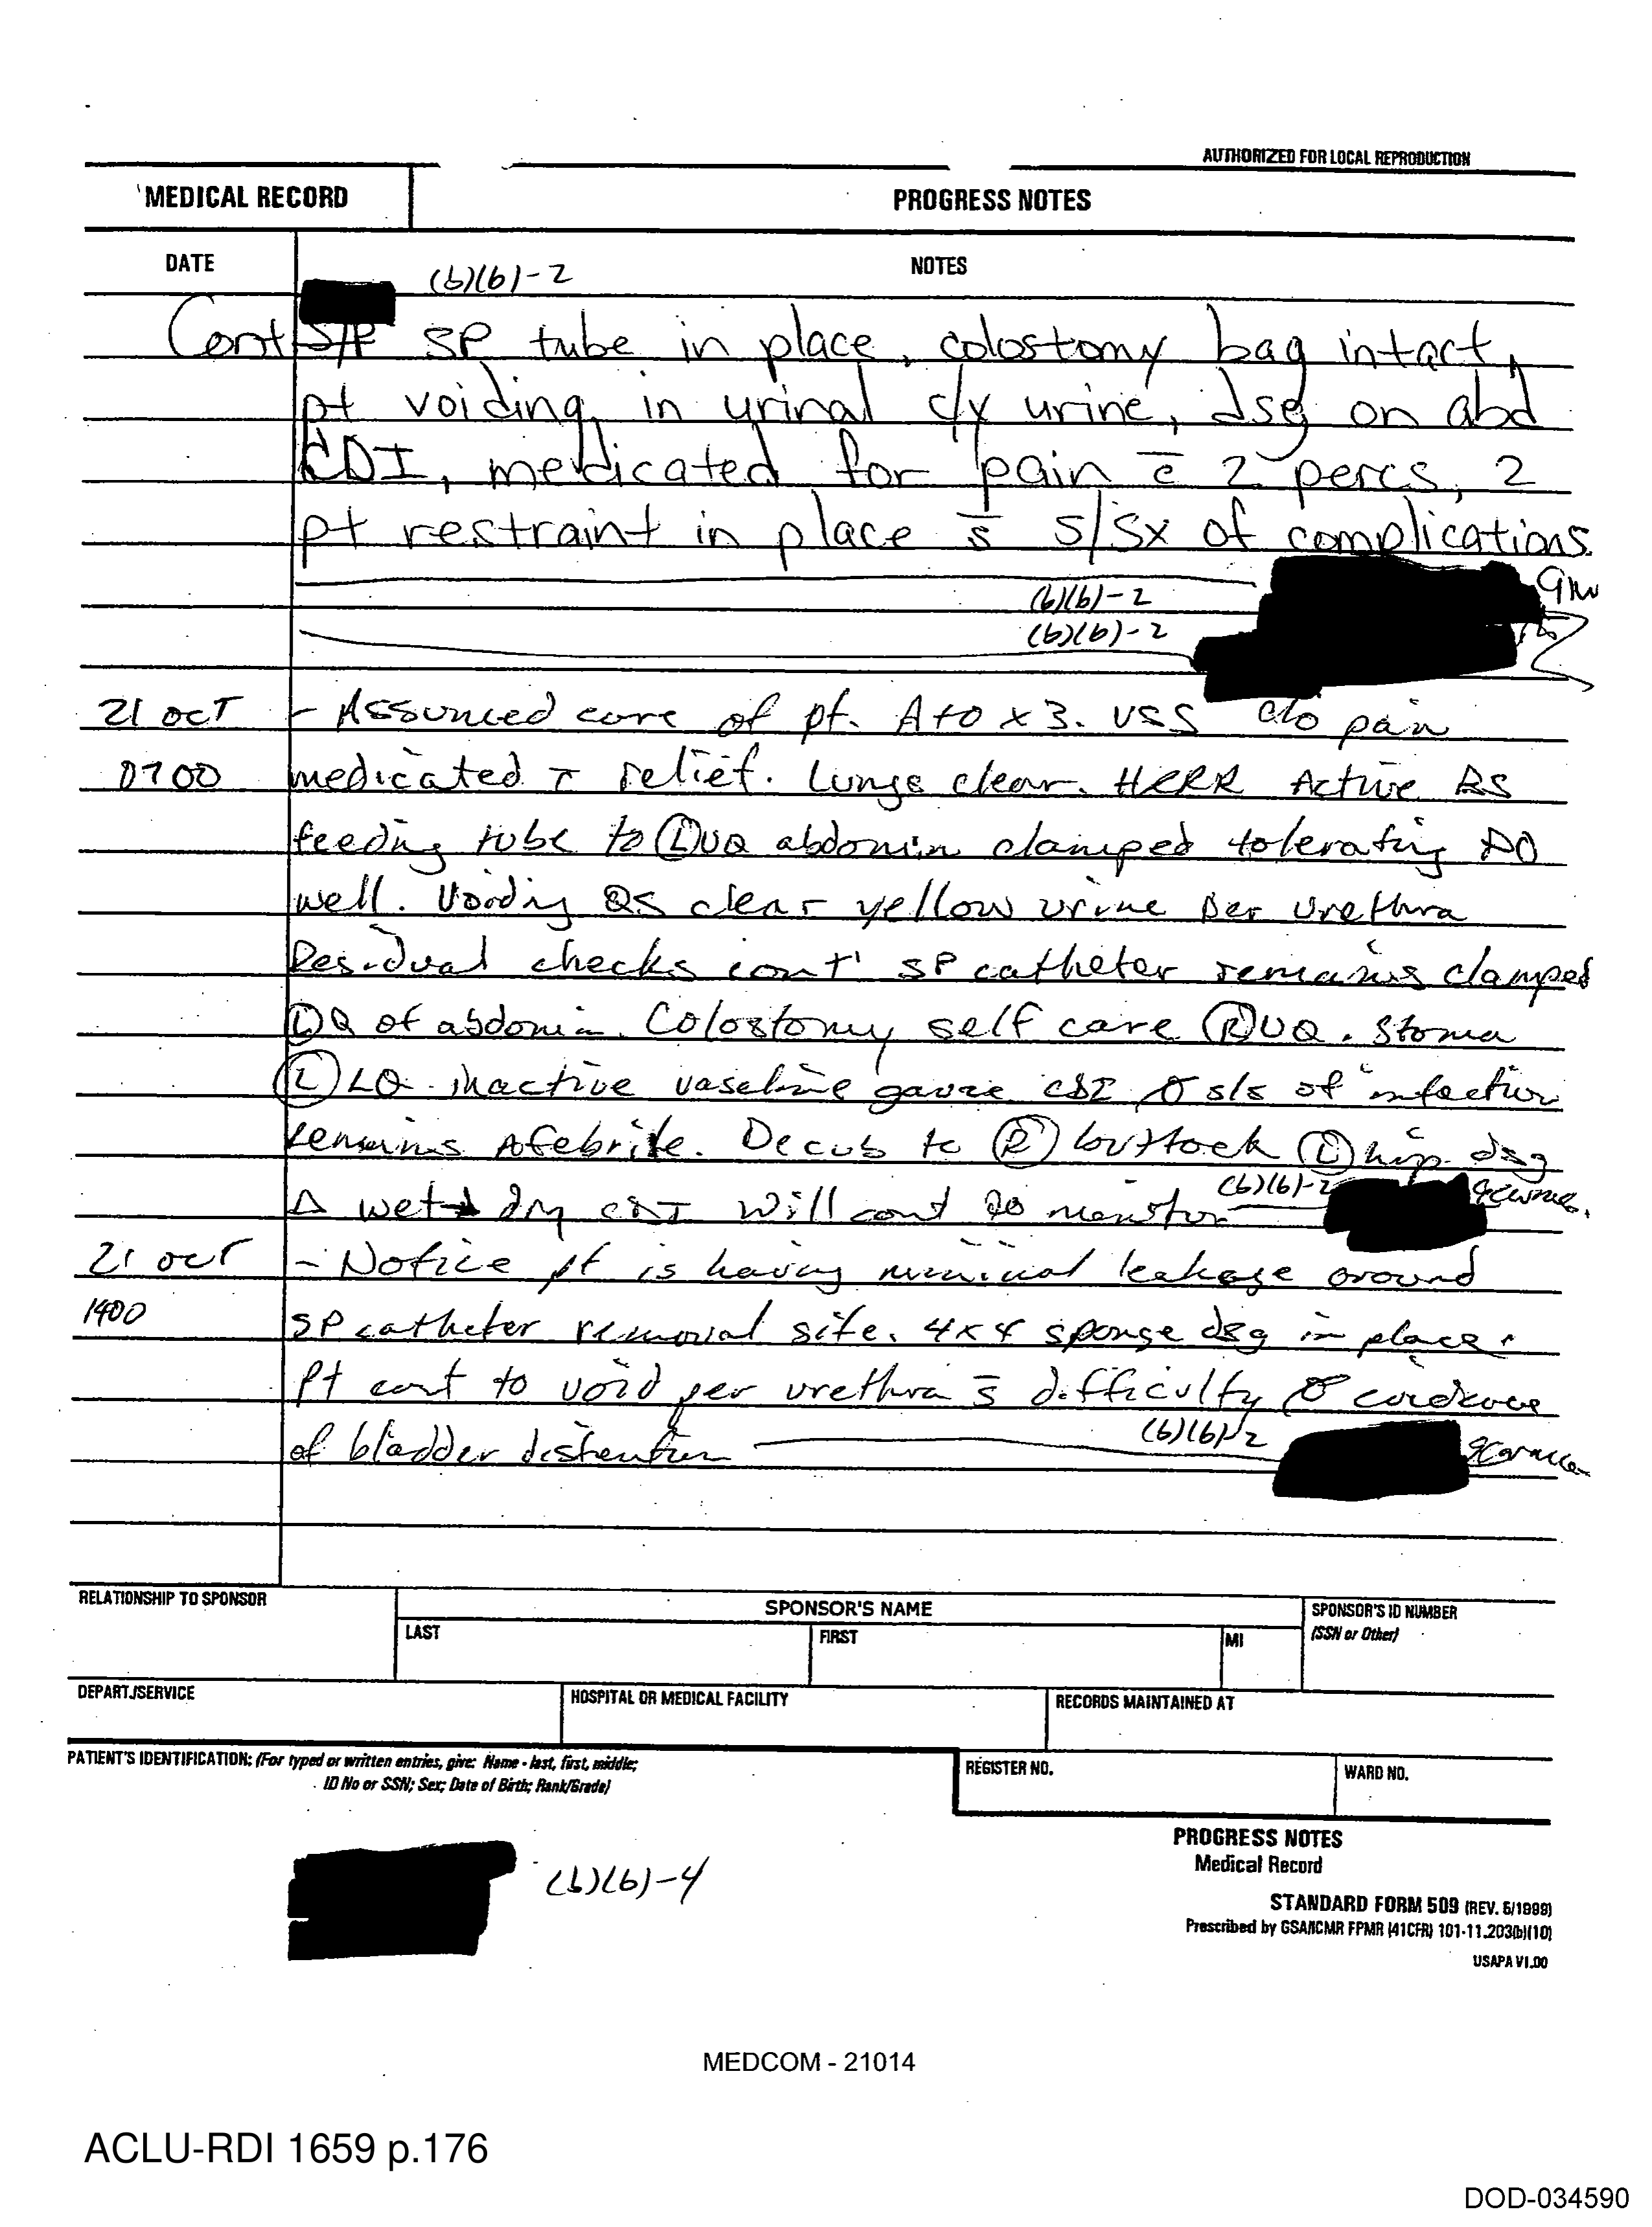 AUTHORIZED FOR LOCAL REPRODUCTION
MEDICAL RECORD
PROGRESS NOTES
DATE
NOTES
(b)(6)-2
Cont S/P SP tube in place, colostomy bag intact,
pt voiding in urinal c/y urine, dsg on abd
CDI, medicated for pain c̄ 2 percs, 2
pt restraint in place s̄ s/sx of complications.
(b)(6)-2
(b)(6)-2
21 OCT - Assumed care of pt. A+O x 3. VSS c/o pain
0700 medicated c̄ relief. Lungs clear. Active BS
feeding tube to Ⓛ UQ abdomin clamped tolerating PO
well. Voiding QS clear yellow urine per urethra
Residual checks cont' SP catheter remains clamped
Ⓛ Q of abdomin. Colostomy self care Ⓡ UQ. Stoma
Ⓛ LQ inactive vaseline gauze CDI Ø s/s of infection
remains Afebrile. Decub to Ⓡ buttock Ⓛ hip dsg
Δ wet → dry CDI will cont to monitor (b)(6)-2
21 OCT - Notice pt is having minimal leakage around
1400 SP catheter removal site. 4x4 sponge dsg in place.
Pt cont to void per urethra s̄ difficulty Ø evidence
of bladder distention (b)(6)-2
RELATIONSHIP TO SPONSOR
SPONSOR'S NAME
LAST
FIRST
MI
SPONSOR'S ID NUMBER
(SSN or Other)
DEPART./SERVICE
HOSPITAL OR MEDICAL FACILITY
RECORDS MAINTAINED AT
PATIENT'S IDENTIFICATION: (For typed or written entries, give: Name - last, first, middle;
ID No or SSN; Sex; Date of Birth; Rank/Grade)
REGISTER NO.
WARD NO.
(b)(6)-4
PROGRESS NOTES
Medical Record
STANDARD FORM 509 (REV. 5/1999)
Prescribed by GSA/ICMR FPMR (41CFR) 101-11.203(b)(10)
USAPA V1.00
MEDCOM - 21014
ACLU-RDI 1659 p.176
DOD-034590